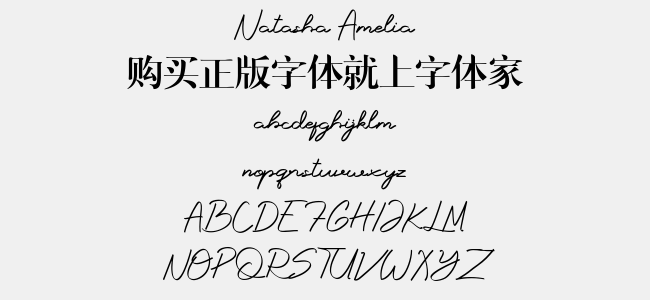 Natasha Amelia
购买正版字体就上字体家
abcdefghijklm
nopqrstuvwxyz
ABCDEFGHIJKLM
NOPQRSTUVWXYZ